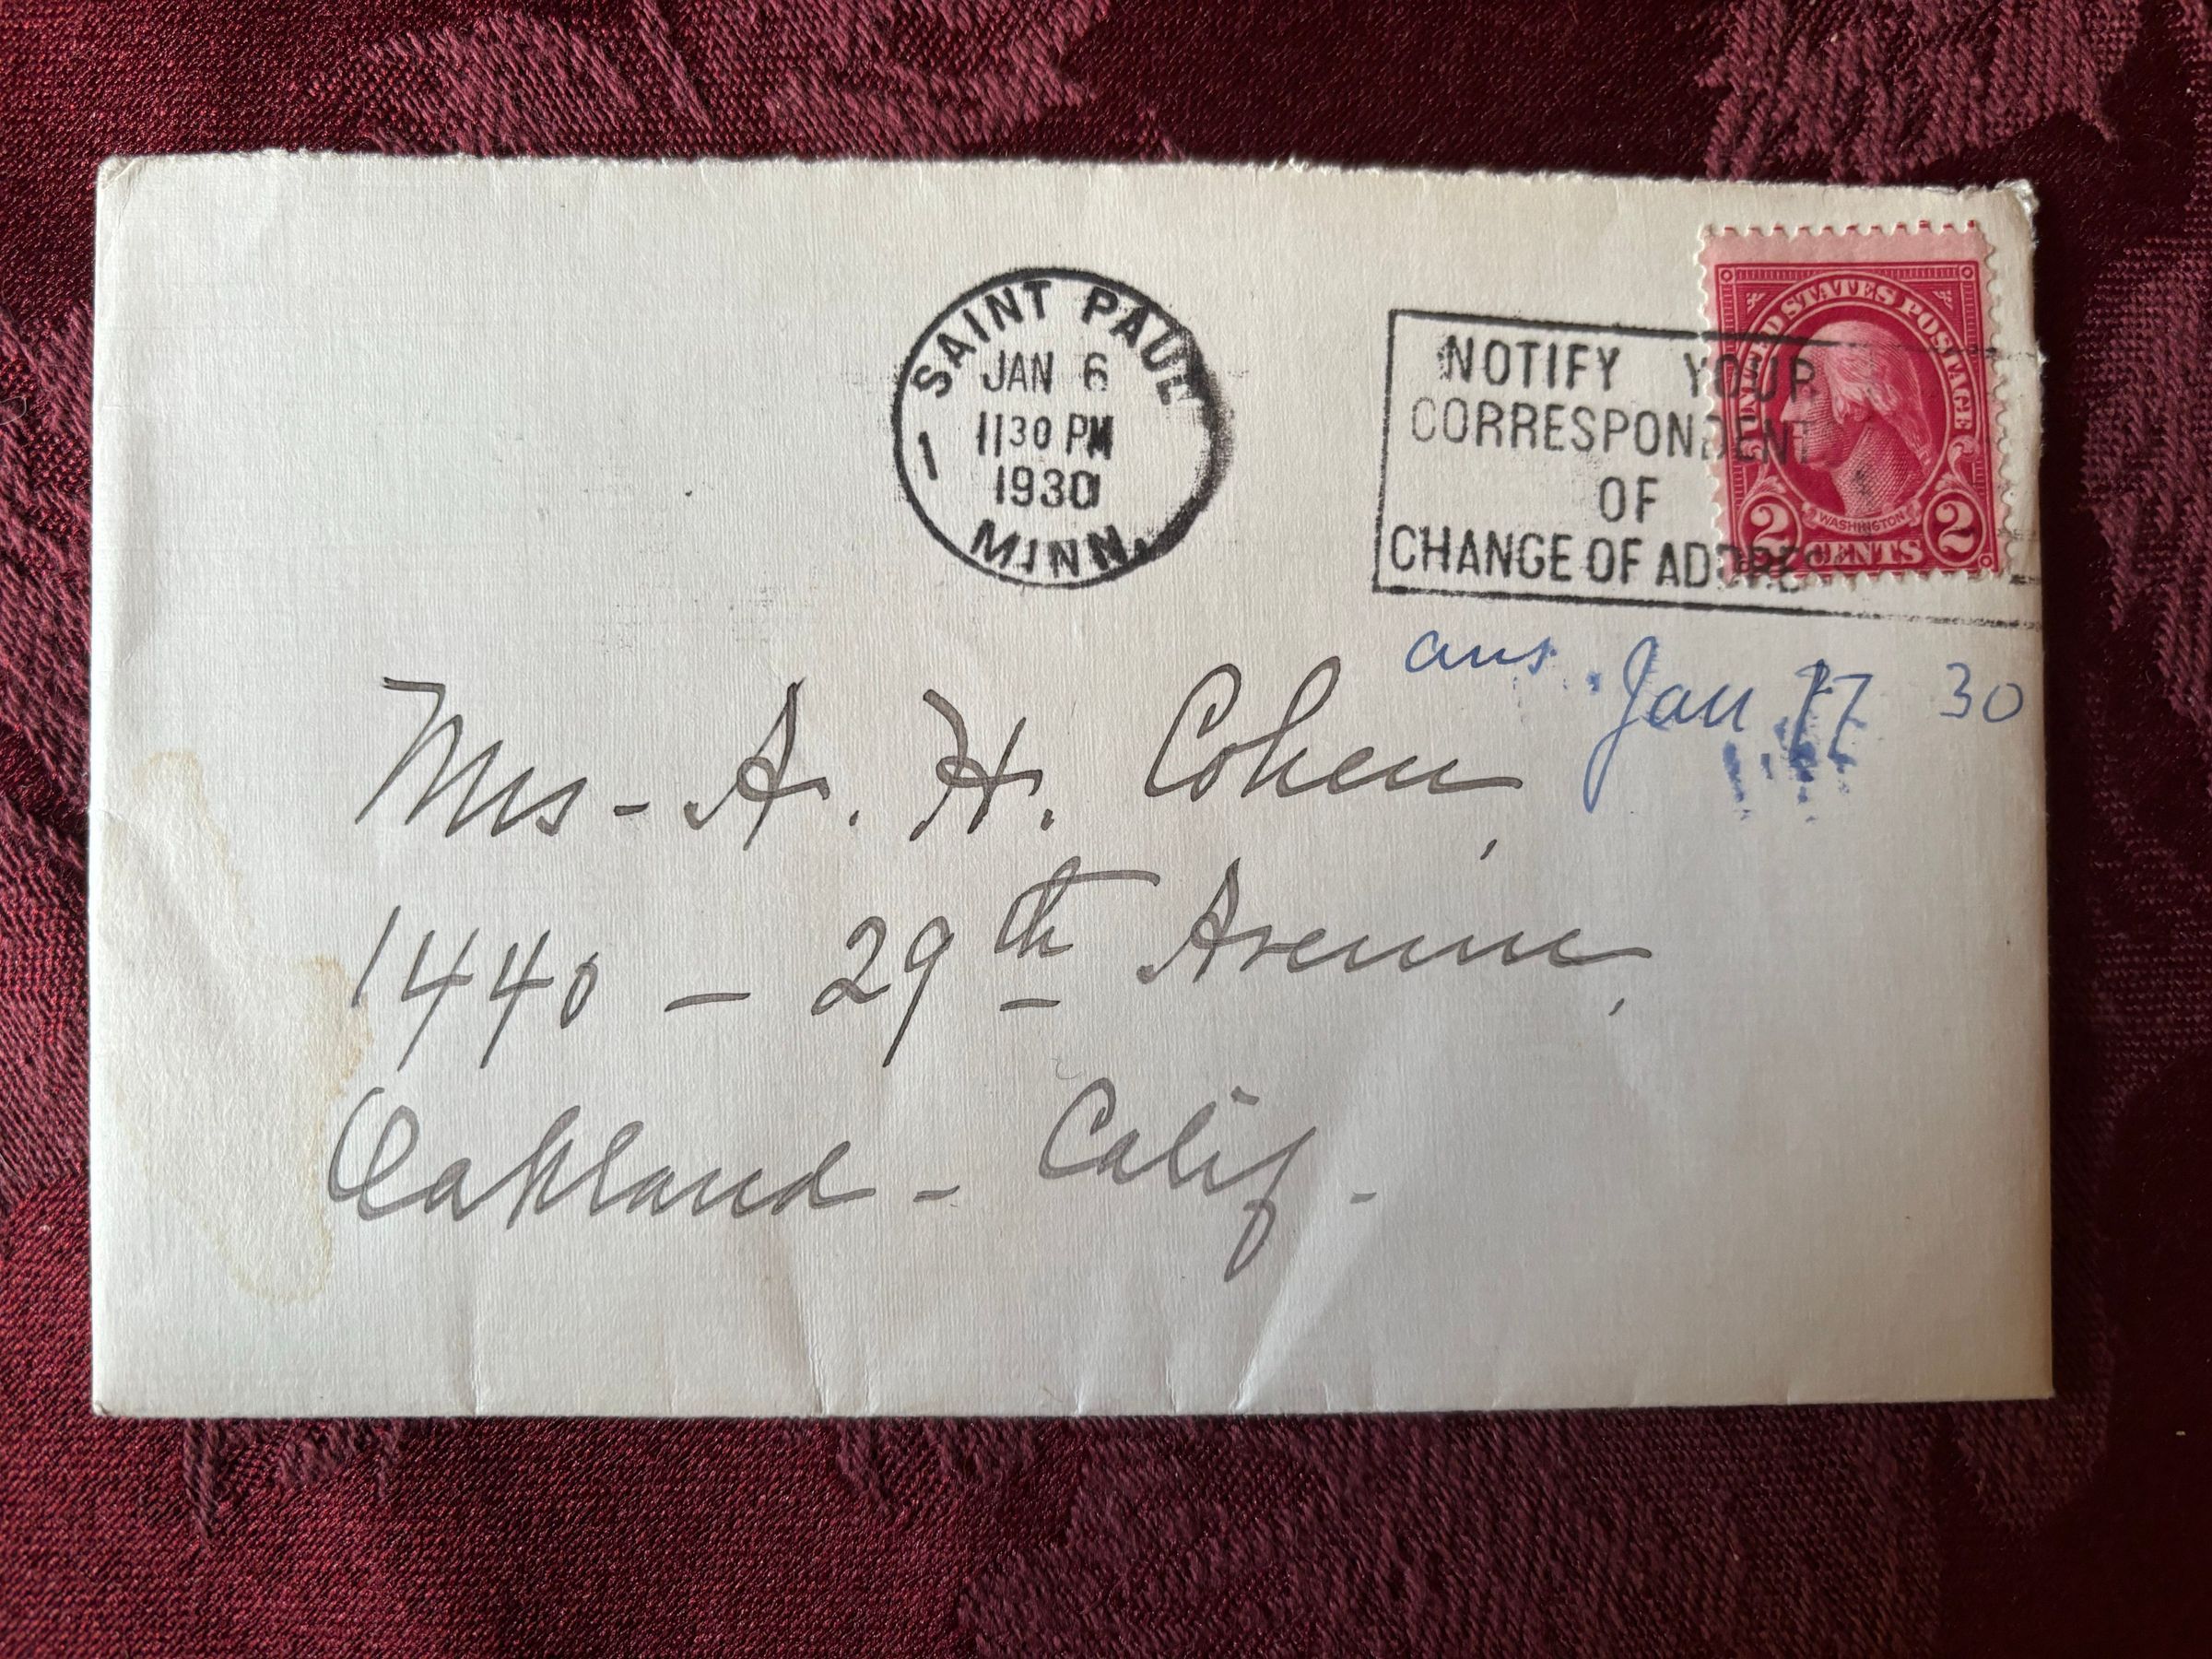 SAINT PAUL
JAN 6
1 1130 PM
1930
MINN.
NOTIFY YOUR
CORRESPONDENT
OF
CHANGE OF ADDRESS
UNITED STATES POSTAGE
WASHINGTON
2 CENTS 2
ans. Jan 17 30
Mrs - A. H. Cohen,
1440 - 29th Avenue,
Oakland - Calif -